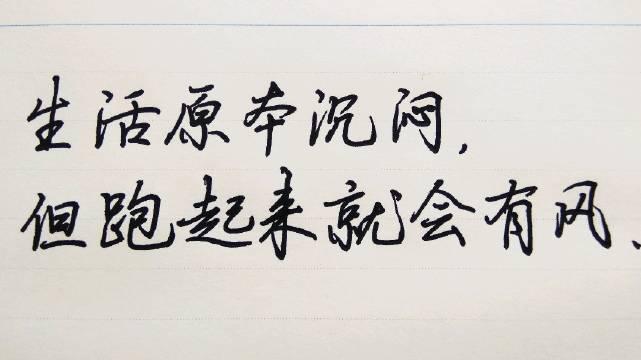 生活原本沉闷,
但跑起来就会有风、